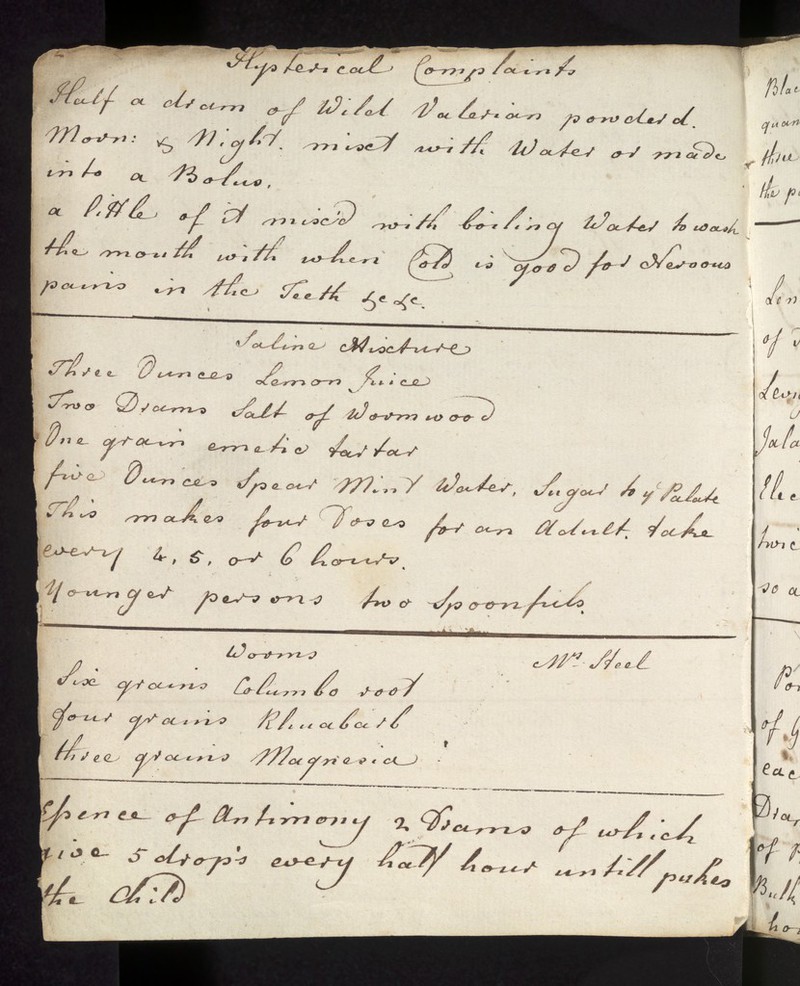 Hysterical Complaints
Half a dram of Wild Valerian powder'd.
Morn: & Night. mixt with Water or made
into a Bolus.
a little of it mixe'd with boiling Water to wash
the mouth with when Cold is good for Nervous
pains in the Teeth &c &c.
Saline Mixture
Three Ounces Lemon Juice
Two Drams Salt of Wormwood
One grain emetic tartar
five Ounces Spear Mint Water, Sugar to yr Palate
This makes four Doses for an Adult. take
every 4, 5, or 6 hours.
Younger persons two Spoonfuls.
Worms Mrs Steel
Six grains Columbo root
four grains Rhuabarb
three grains Magnesia
Essence of Antimony 2 Drams of which
give 5 drops every half hour untill pukes
the Child
Blac
quan
three
the p
Lem
of
Jala
Elec
twic
so a
of
eac
Dra
of
Bulk
ho